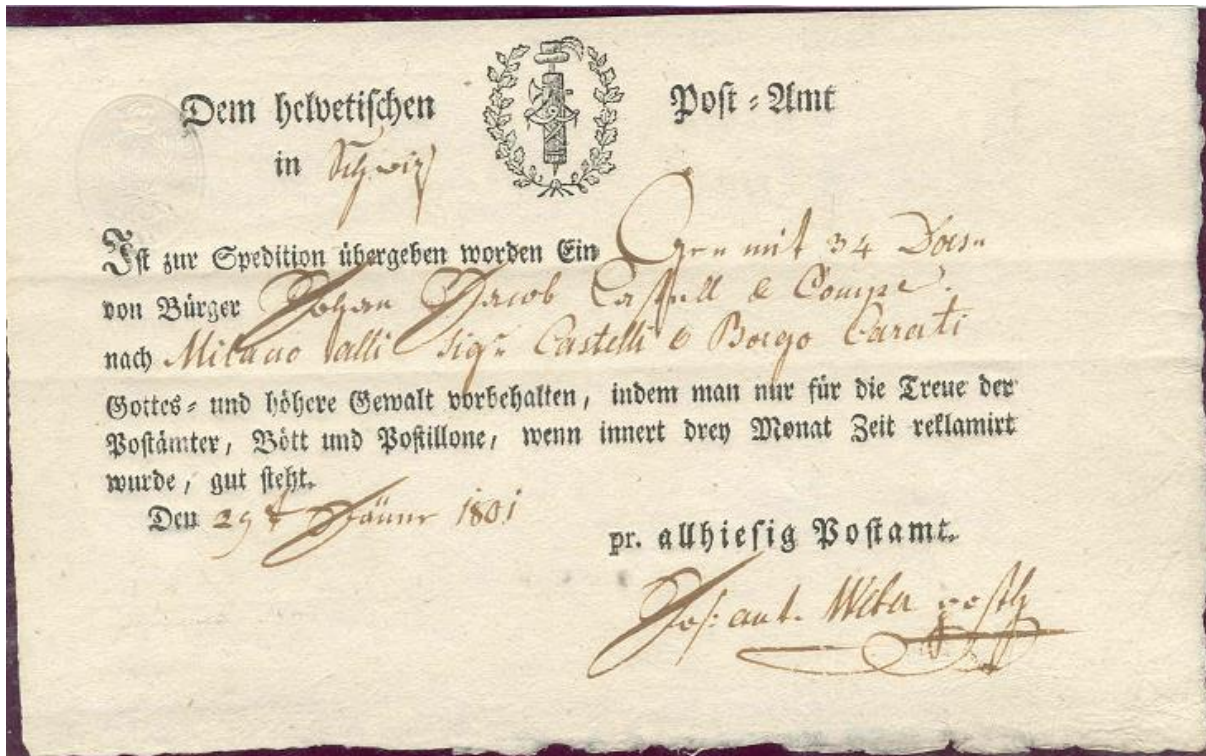 Dem helvetischen Post-Amt
in Schwiz
Ist zur Spedition übergeben worden Ein mit 34
von Bürger Johan Jacob Castell & Compe.
nach Milano alli Sigr. Castelli e Borgo Carati
Gottes- und höhere Gewalt vorbehalten, indem man nur für die Treue der
Postämter, Bött und Postillone, wenn innert drey Monat Zeit reklamirt
wurde, gut steht.
Den 29t Jäner 1801
pr. allhiesig Postamt.
Jos: ant. Weber